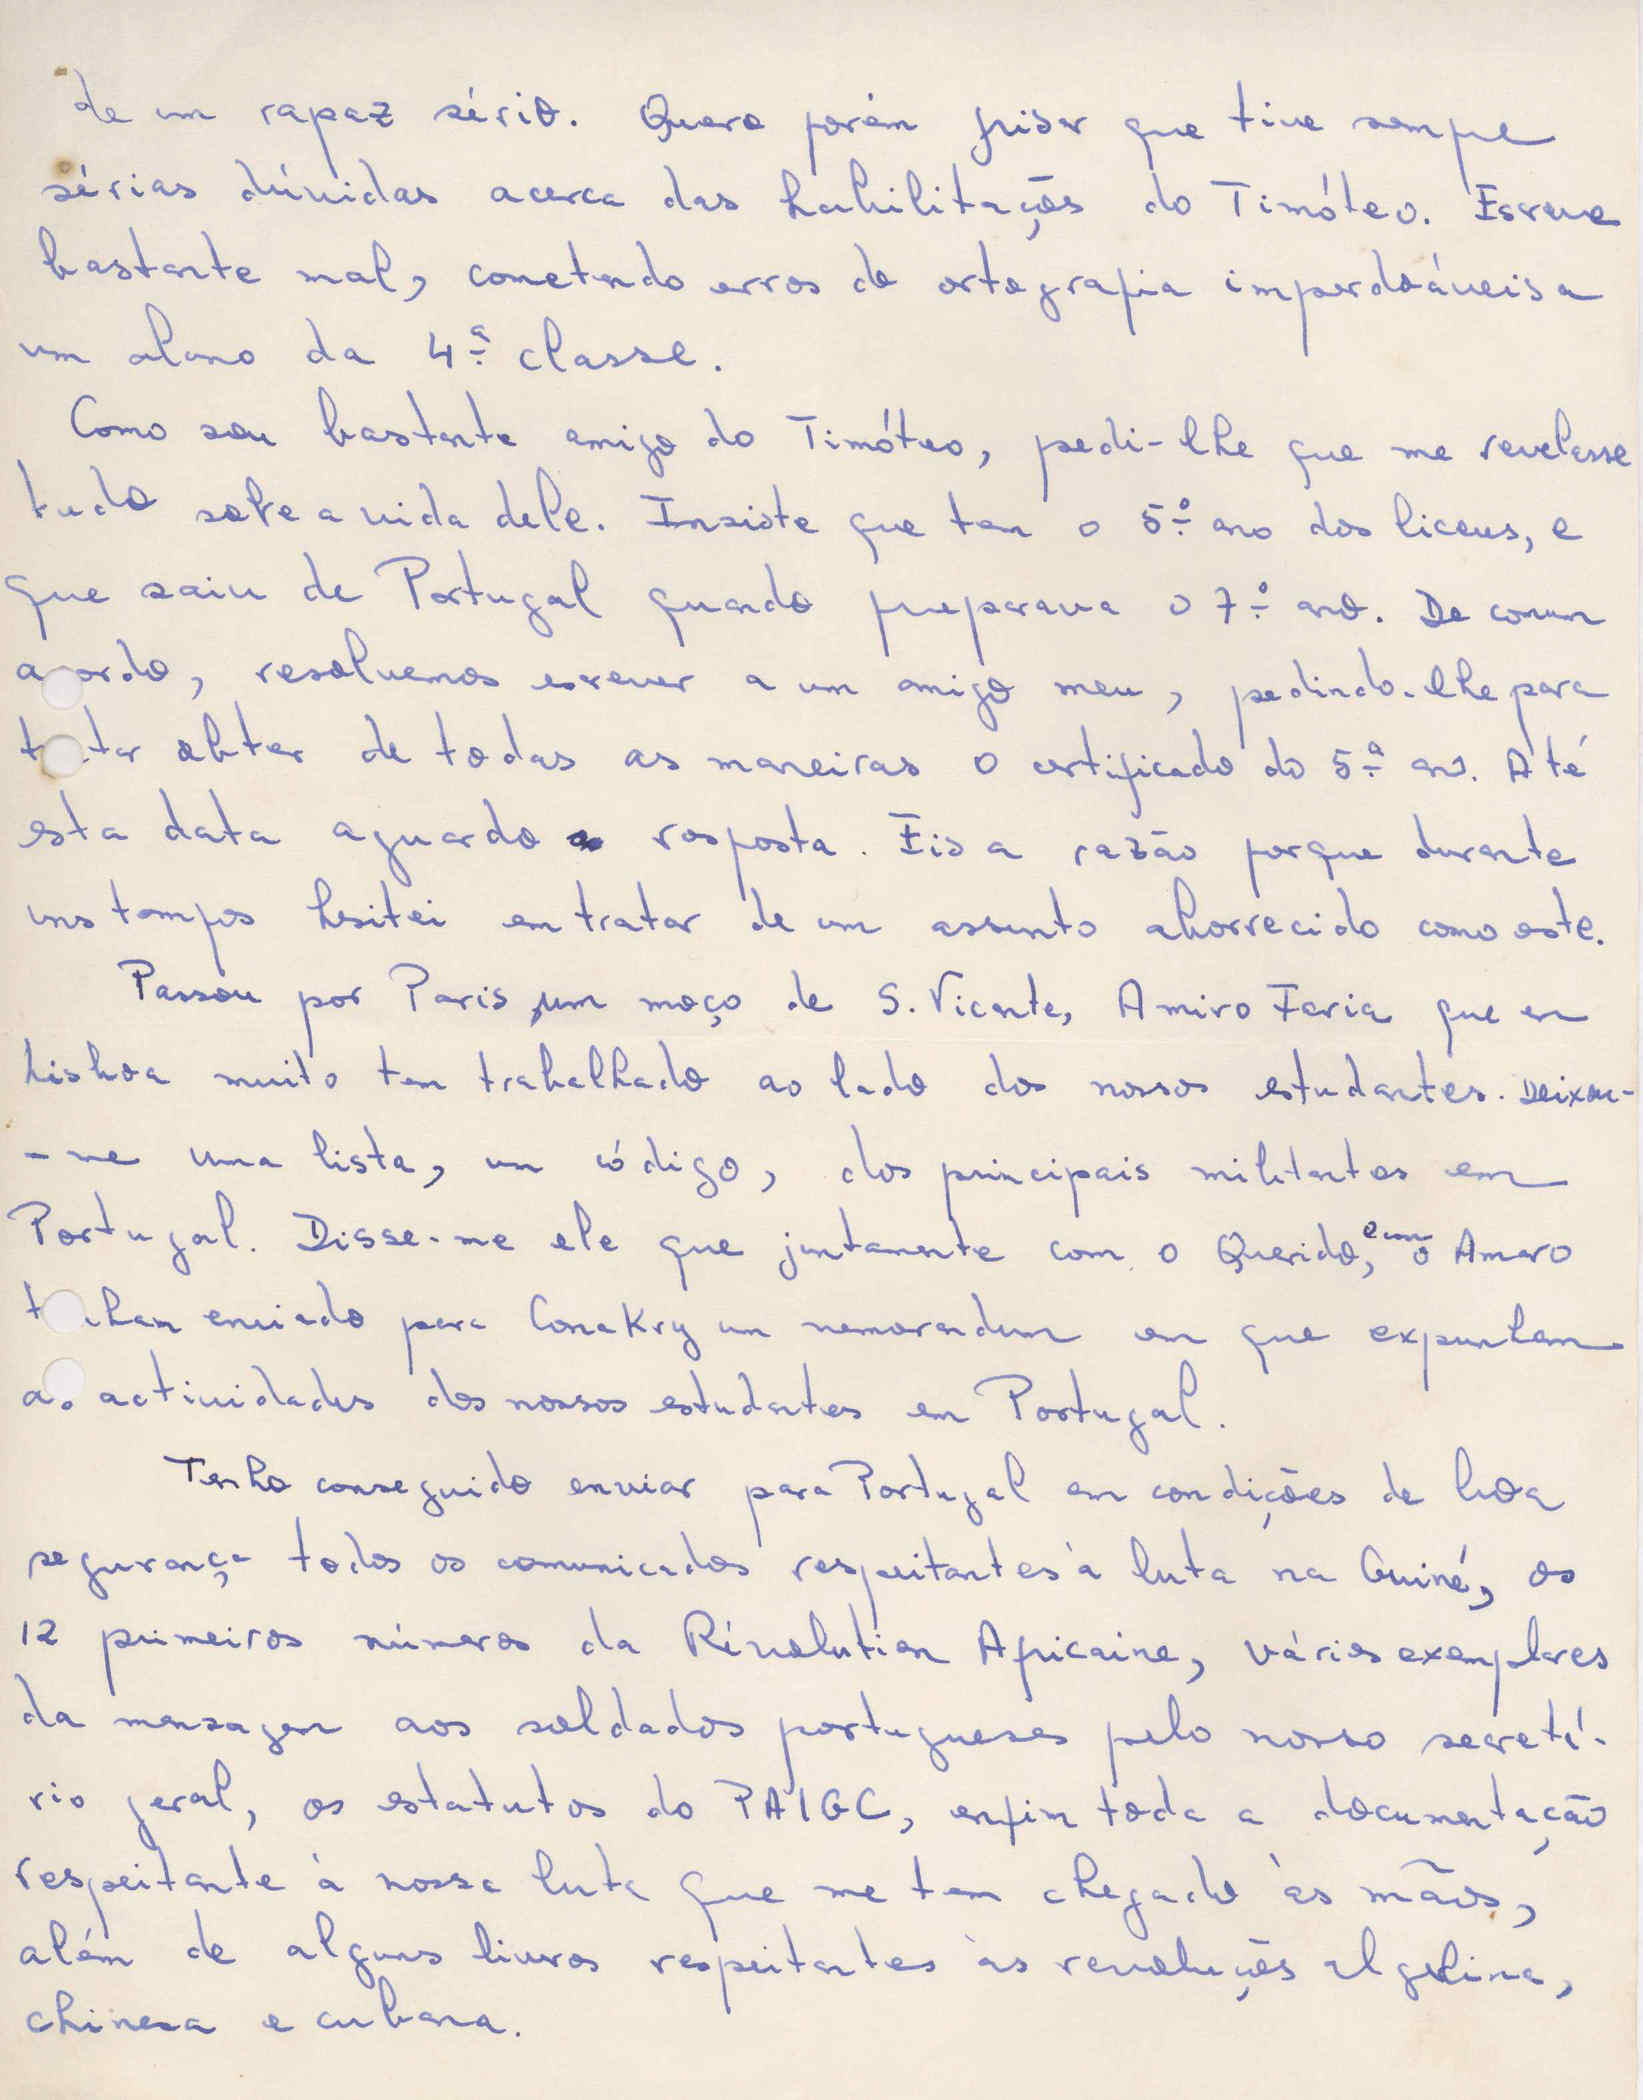 de um rapaz sério. Quero porém frisar que tive sempre
sérias dúvidas acerca das habilitações do Timóteo. Escreve
bastante mal, cometendo erros de ortografia imperdoáveis a
um aluno da 4.ª classe.
Como sou bastante amigo do Timóteo, pedi-lhe que me revelasse
tudo sobre a vida dele. Insiste que tem o 5.º ano dos liceus, e
que saiu de Portugal quando preparava o 7.º ano. De comum
acordo, resolvemos escrever a um amigo meu, pedindo-lhe para
tentar obter de todas as maneiras o certificado do 5.º ano. Até
esta data aguardo a resposta. Eis a razão porque durante
uns tempos hesitei em tratar de um assunto aborrecido como este.
Passou por Paris, um moço de S. Vicente, Amiro Faria que em
Lisboa muito tem trabalhado ao lado dos nossos estudantes. Deixou-
-me uma lista, um código, dos principais militantes em
Portugal. Disse-me ele que juntamente com o Querido, e com o Amaro
tinham enviado para Conakry um memorandum em que expunham
as actividades dos nossos estudantes em Portugal.
Tenho conseguido enviar para Portugal em condições de boa
segurança todos os comunicados respeitantes à luta na Guiné, os
12 primeiros números da Révolution Africaine, vários exemplares
da mensagem aos soldados portugueses pelo nosso secretá-
rio geral, os estatutos do PAIGC, enfim toda a documentação
respeitante à nossa luta que me tem chegado às mãos,
além de alguns livros respeitantes às revoluções algelina,
chinesa e cubana.